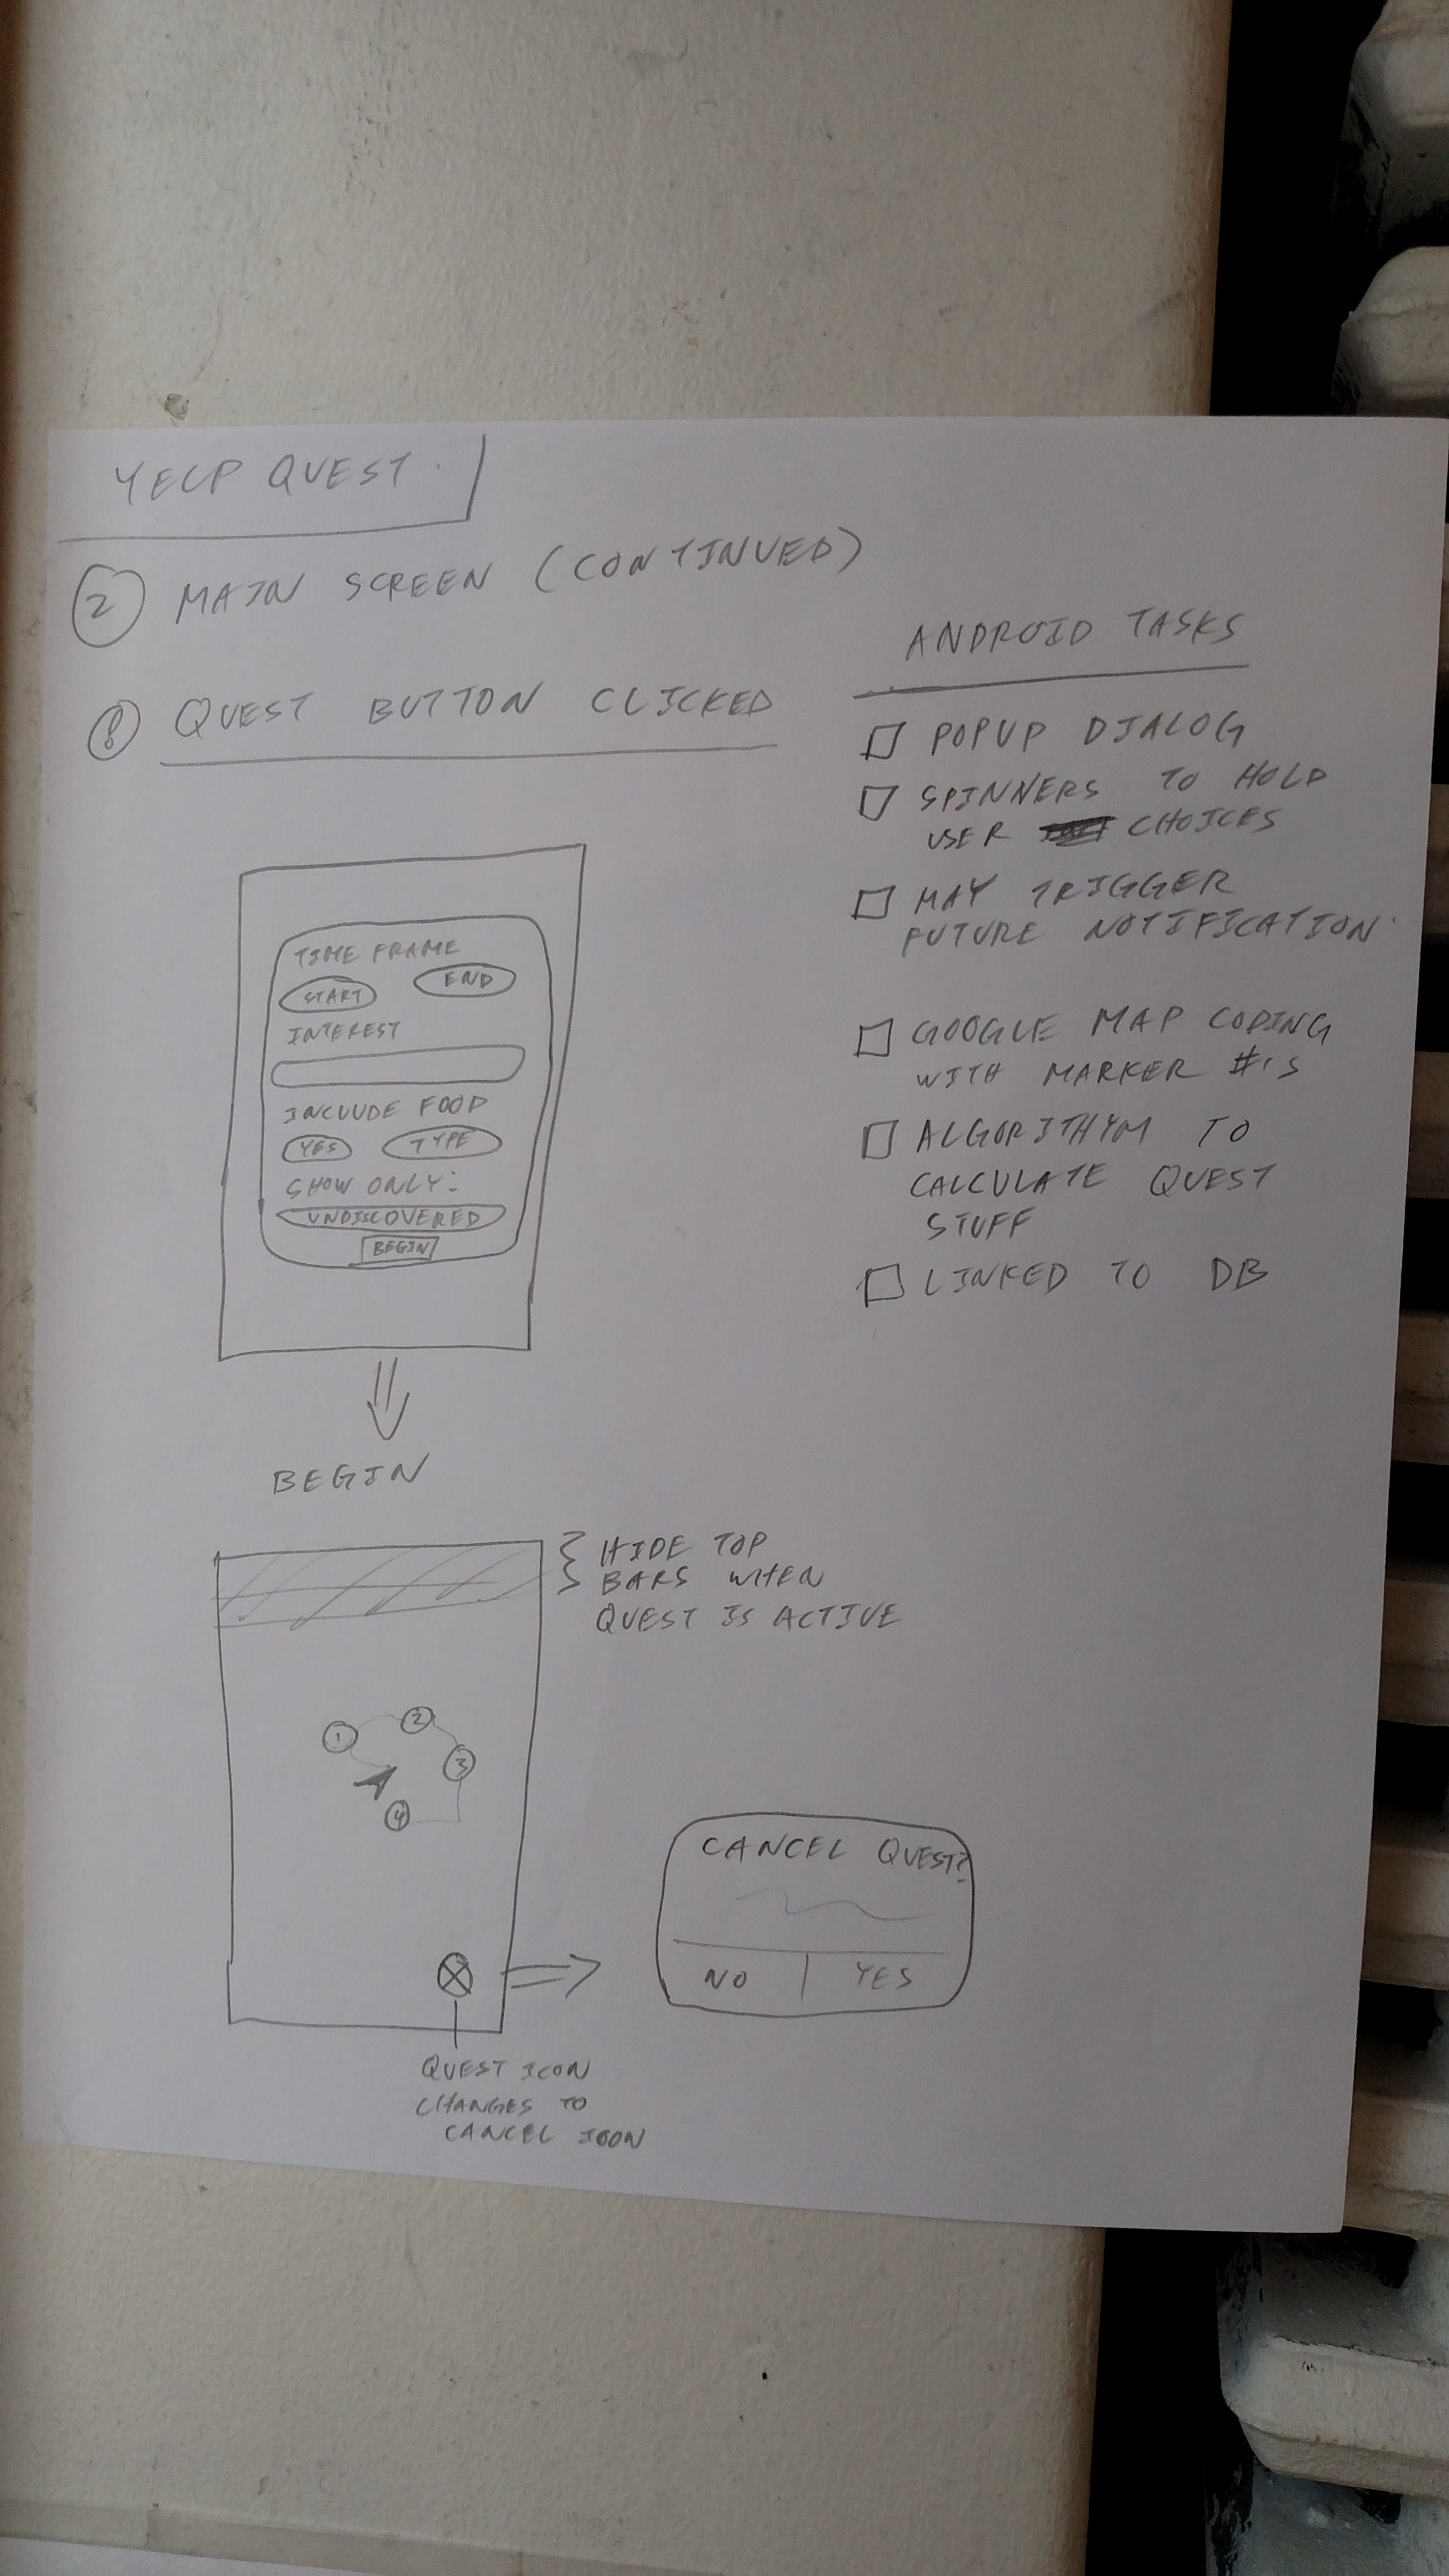 YELP QUEST
2 MAIN SCREEN (CONTINUED)
! QUEST BUTTON CLICKED
TIME FRAME
START END
INTEREST
INCLUDE FOOD
YES TYPE
SHOW ONLY:
UNDISCOVERED
BEGIN
BEGIN
HIDE TOP
BARS WHEN
QUEST IS ACTIVE
1 2
3
4
QUEST ICON
CHANGES TO
CANCEL ICON
CANCEL QUEST?
NO YES
ANDROID TASKS
POPUP DIALOG
SPINNERS TO HOLD
USER CHOICES
MAY TRIGGER
FUTURE NOTIFICATION
GOOGLE MAP CODING
WITH MARKER #'S
ALGORITHYM TO
CALCULATE QUEST
STUFF
LINKED TO DB